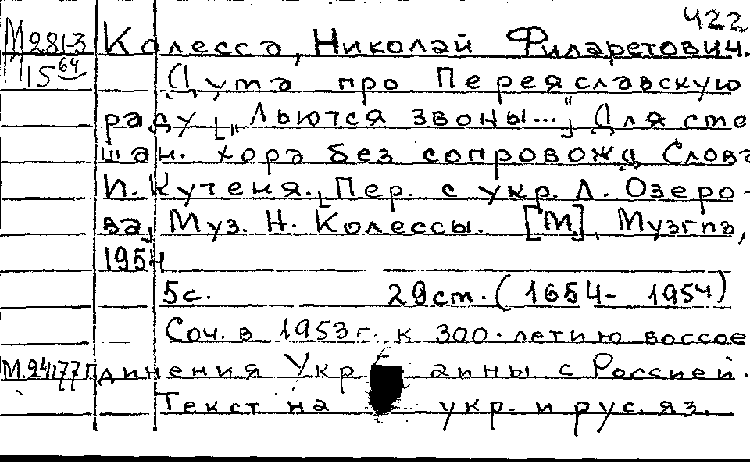 422
М 281-3 Колесса, Николай Филаретович.
15 64 Дума про Переяславскую
раду [„Льются звоны..."] Для сме
шан. хора без сопровожд Слова
И. Кутеня. Пер. с укр. Л. Озеро-
ва, Муз. Н. Колессы. [М.], Музгиз,
1954
5с. 29см. (1654-1954)
Соч. в 1953г. к 300-летию воссое
динения Украины с Россией.
Текст на укр. и рус. яз.